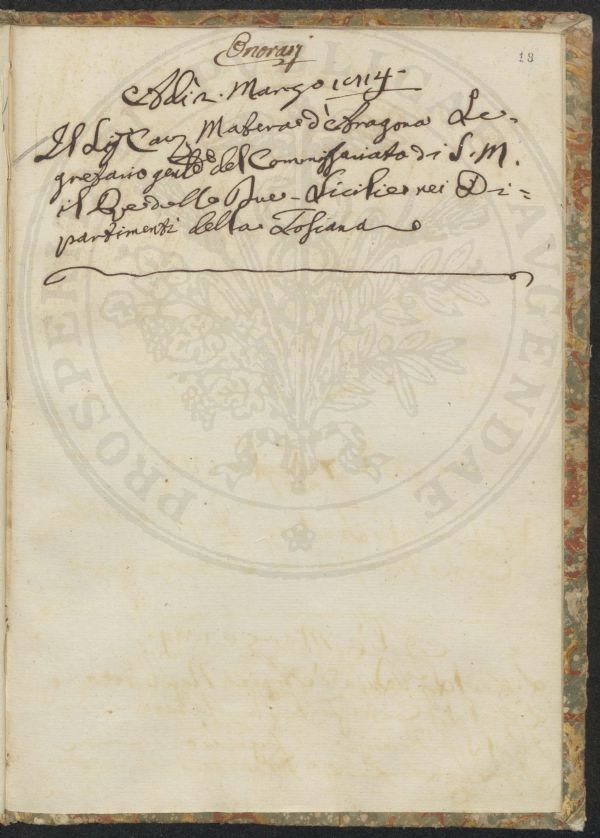 Onorarj
18
Adi 2. Marzo 1814
Il Sig Cav Matera d'Aragona Se-
gretario genle del Commissariato di S. M.
il Re delle Due Sicilie nei Di=
partimenti della Toscana
PROSPER AUGENDAE